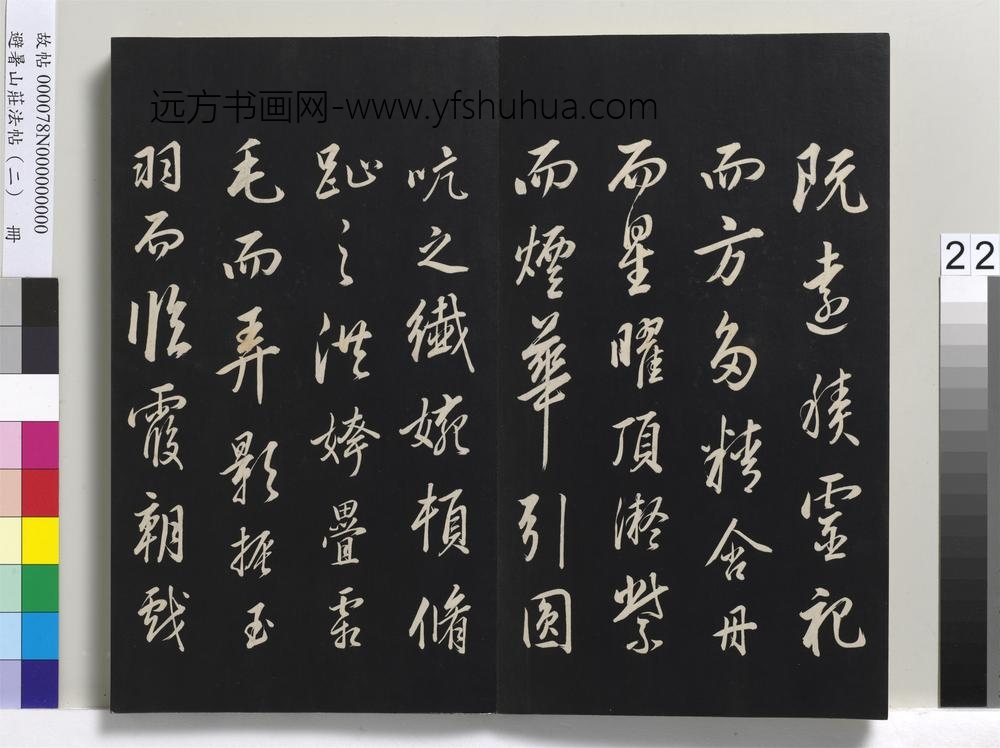 远方书画网-www.yfshuhua.com
既遠積靈祀
而方多精含丹
而星曜頂凝紫
而煙華引圓
吭之纖婉頓脩
趾之洪姱疊霜
毛而弄影振玉
羽而臨霞朝戲
故帖 000078N000000000
避暑山莊法帖（二） 冊
22